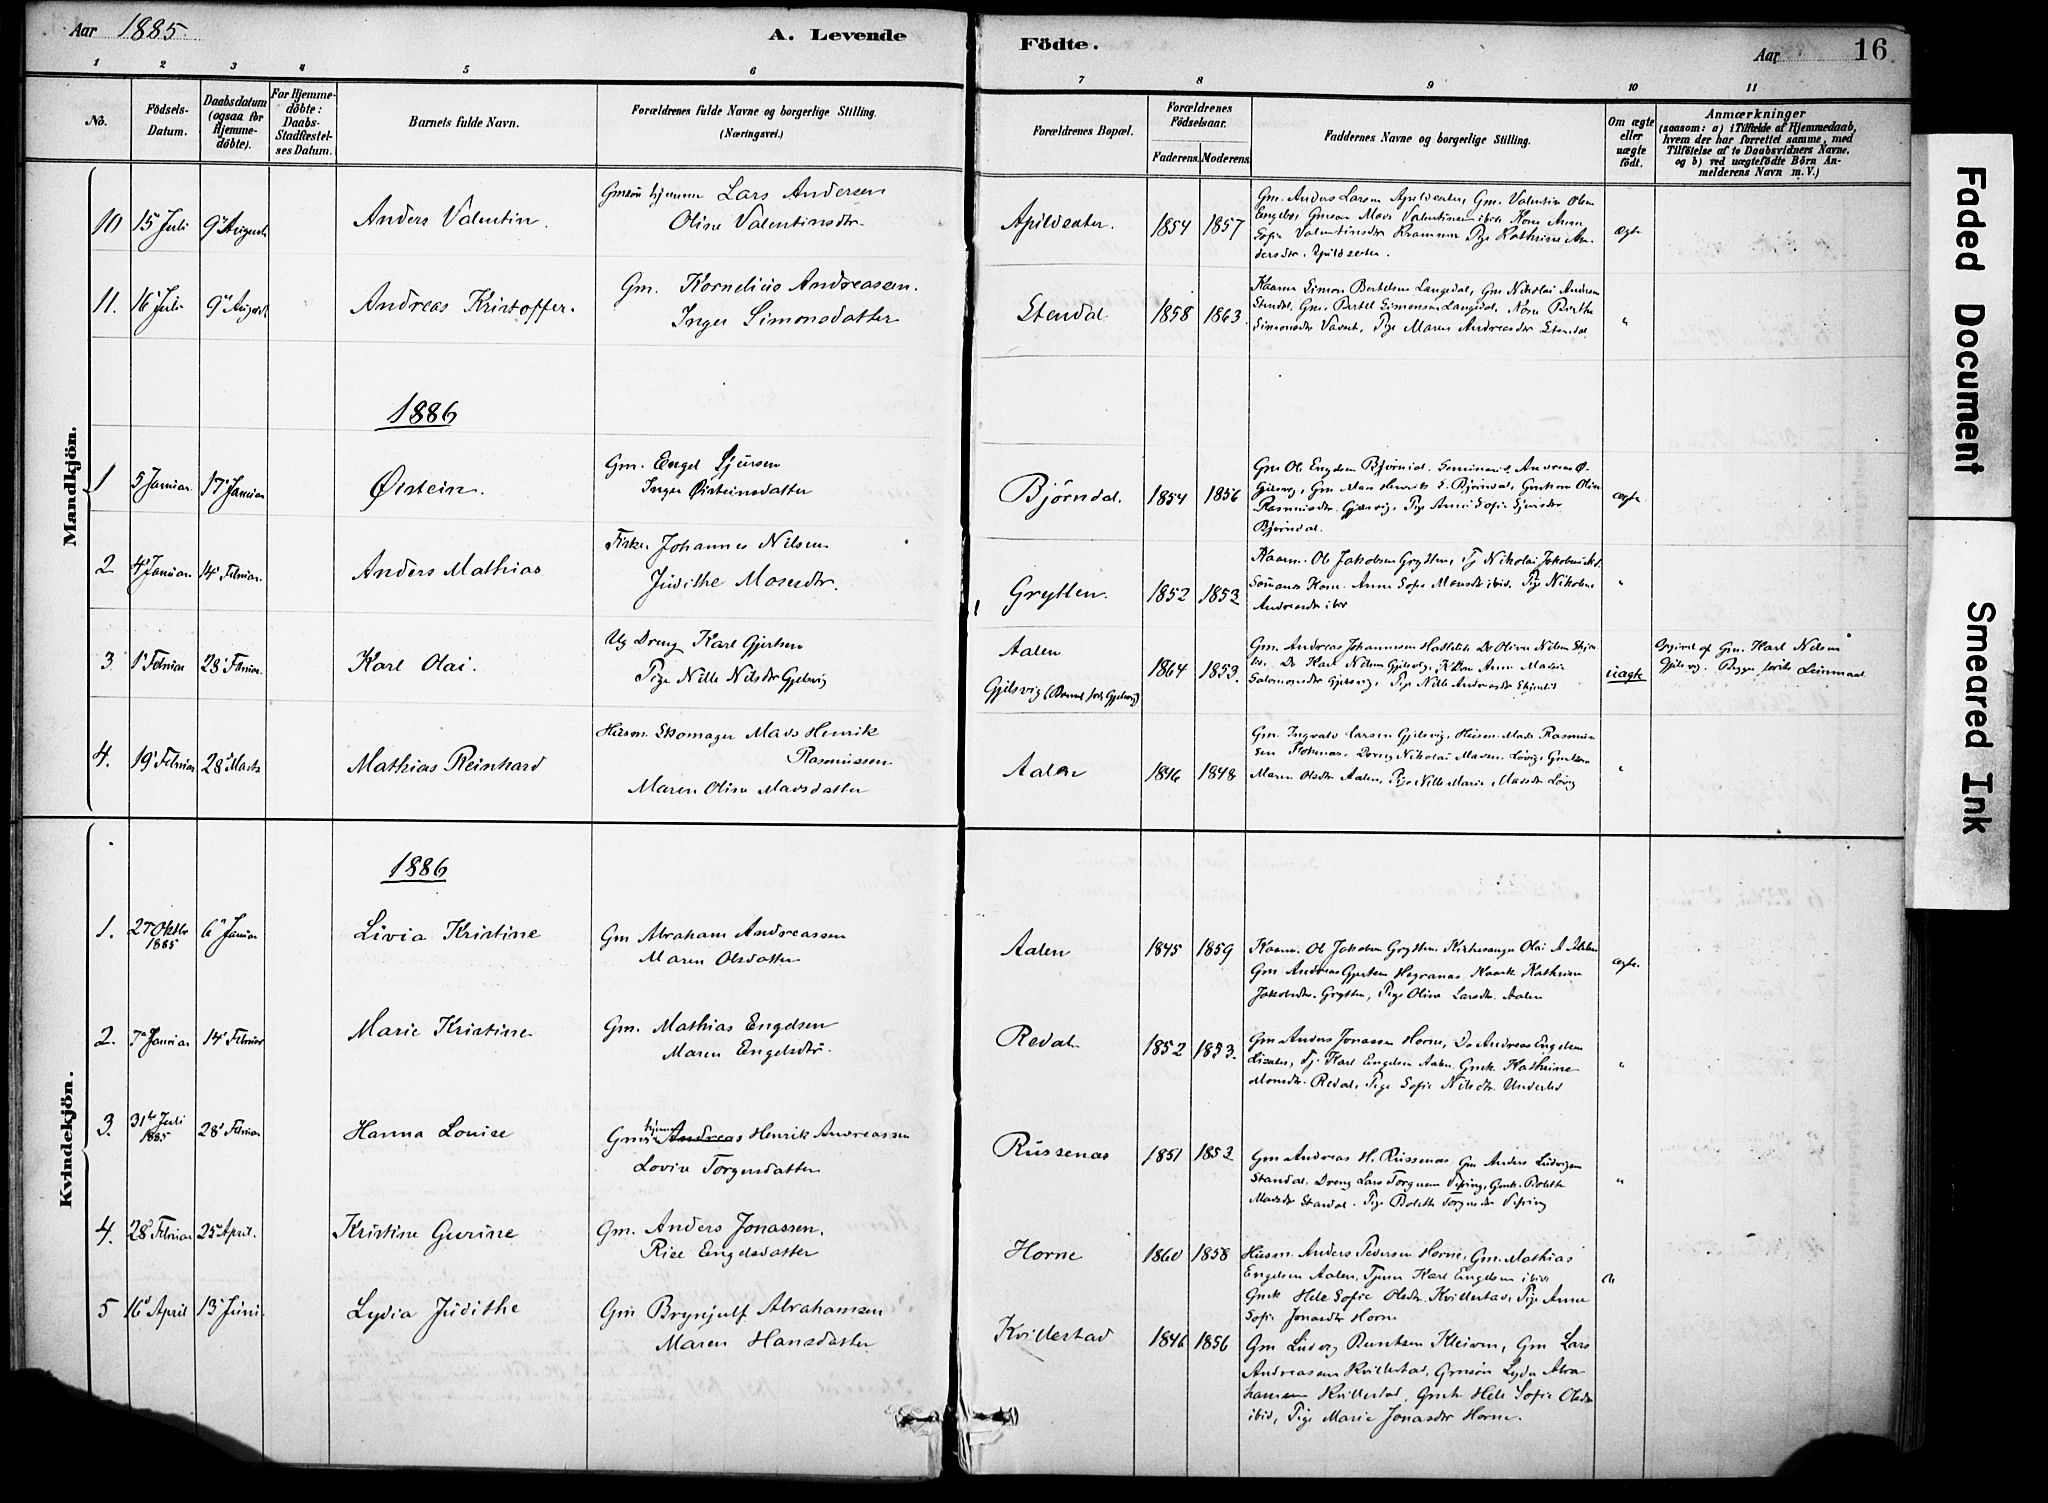 Aar 1885.
A. Levende
Födte.
Aar
16
1 2 3 4 5 6 7 8 9 10 11
No.
Födsels-
Datum.
Daabsdatum
(ogsaa for
Hjemme-
döbte).
For Hjemme-
döbte:
Daabs-
Stadfæstel-
ses Datum.
Barnets fulde Navn.
Forældrenes fulde Navne og borgerlige Stilling.
(Næringsvei.)
Forældrenes Bopæl.
Forældrenes
Födselsaar.
Faderens. Moderens.
Faddernes Navne og borgerlige Stilling.
Om ægte
eller
uægte
födt.
Anmærkninger
(saasom: a) i Tilfælde af Hjemmedaab,
hvem der har forrettet samme, med
Tilföielse af to Daabsvidners Navne.
og b) ved uægtefödte Börn An-
melderens Navn m. V.)
Mandkjön.
10 15 Juli 9 August Anders Valentin.
Gmsøn hjemme Lars Andersen
Oline Valentinsdtr
Apildsæter. 1854 1857
Gm. Anders Larsen Apildsæter, Gm. Valentin Olsen
ægte
11. 16 Juli 9 August Andreas Kristoffer.
Gm. Kornelius Andreasen.
Inger Simonsdatter
Stendal. 1858 1863
Kaarm. Simon Bertelsen Langedal, Gm Nikolai Andersen
Stendal, Gm. Bertel Simonsen Langedal, Kone Berthe
Simonsdtr Vadset, Pige Maren Andreasdtr Stendal
"
1886
1 5 Januar 17 Januar Øistein.
Gm. Engel Sjursen
Inger Øisteinsdatter
Björndal. 1854 1856
Rasmusdtr. Gjelsvig, Pige Anne Sofie Sjursdtr
Björndal.
ægte
2 4 Januar 14 Februar Anders Mathias
Fisker Johannes Nilsen
Judithe Monsdtr.
Grytten. 1852 1853
Kaarm. Ole Jakobsen Grytten, Tj Nikolai Jakobsen
Kone Anne Sofie Monsdtr ibid. Pige Nikoline
Andreasdtr ibid
"
3 1 Februar 28 Februar Karl Olai.
Ug Dreng Karl Gjertsen
Pige Nille Nilsdtr Gjelsvig
Aalen
Gjelsvig
1864 1853.
Gm. Andreas Johannesen
Do Karl Nilsen Gjelsvig, Kone Anne Marie
Salomonsdtr Gjelsvig, Pige Nille Andreasdtr
uægte
Opgivet af Gm. Karl Nilsen
Gjelsvig. Begges første Leiermaal
4. 19 Februar 28 Marts Mathias Reinhard
Husm. Skomager Mads Henrik
Rasmussen
Maren Oline Madsdatter
Aalen 1846 1848
Gm. Ingvald Larsen Gjelsvig, Husm. Mads Rasmus-
sen
Maren Olsdtr Aalen, Pige Nille Marie Madsdtr
"
Kvindekjön.
1886
1. 27 Oktbr 1885 6 Januar Livia Kristine
Gm Abraham Andreassen
Maren Olsdatter
Aalen 1845 1859
Kaarm. Ole Jakobsen Grytten, Kirkesanger Olai A Aalen
Gm Andreas Gjertsen Hegranas Kaark Kathrine
Jakobsdtr. Grytten, Pige Oline Larsdtr. Aalen
ægte.
2. 7 Januar 14 Februar Marie Kristine
Gm. Mathias Engelsen
Maren Engelsdtr.
Redal 1852 1853.
Gm Anders Jonassen Horne, Do Andreas Engelsen
Tj. Karl Engelsen Aalen. Gmk Kathrine
Monsdtr. Redal, Pige Sofie Nilsdtr. Underlid
"
3. 31te Juli 1885 28 Februar Hanna Louise
Gmsøn hjemme Andreas Henrik Andreassen
Lovise Torgersdatter
Russenas 1851 1853
Gm Andreas H. Russenas. Gm Anders Ludvigsen
Standal. Dreng Lars
Madsdtr Standal. Pige
"
4. 28 Februar 25 April. Kristine Gurine
Gm. Anders Jonassen.
Rise Engelsdatter
Horne 1860 1858
Husm. Anders Pedersen Horne, Gm. Mathias
Engelsen Aalen, Tjener Karl Engelsen ibid
Gmk Hele Sofie Olsdtr. Kvillestad, Pige Anne
Sofie Jonasdtr Horne
5 16 April 13 Juni Lydia Judithe
Gm Brynjulf Abrahamsen
Maren Hansdatter
Kvillestad 1846 1856
Gm Ludvig Berntsen Kleiven, Gm Lars
Andreassen Kvillestad, Gmsøn Lyder Abra
hamsen Kvillestad, Gmk Hele Sofie Olsdtr
ibid, Pige Marie Jonasdtr Horne.
Faded Document
Smeared Ink